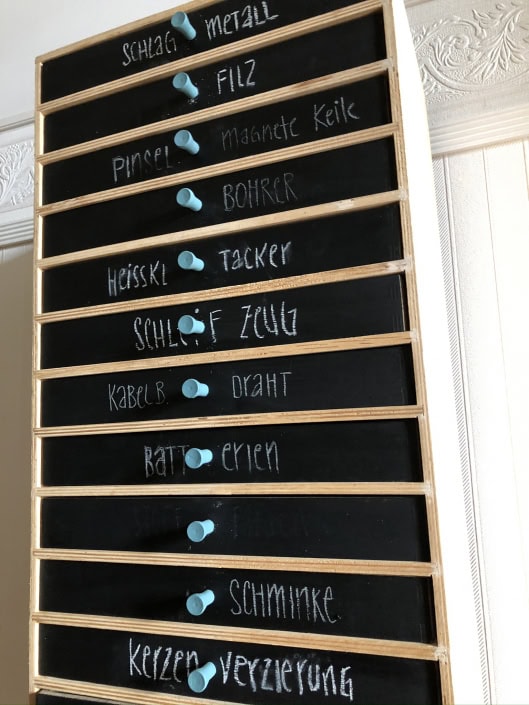 SCHLAG METALL
FILZ
PINSEL magnete Keile
BOHRER
HEISSKL TACKER
SCHLEIF ZEUG
KABELB. DRAHT
BATTERIEN
SCHMINKE
Kerzen VERZIERUNG